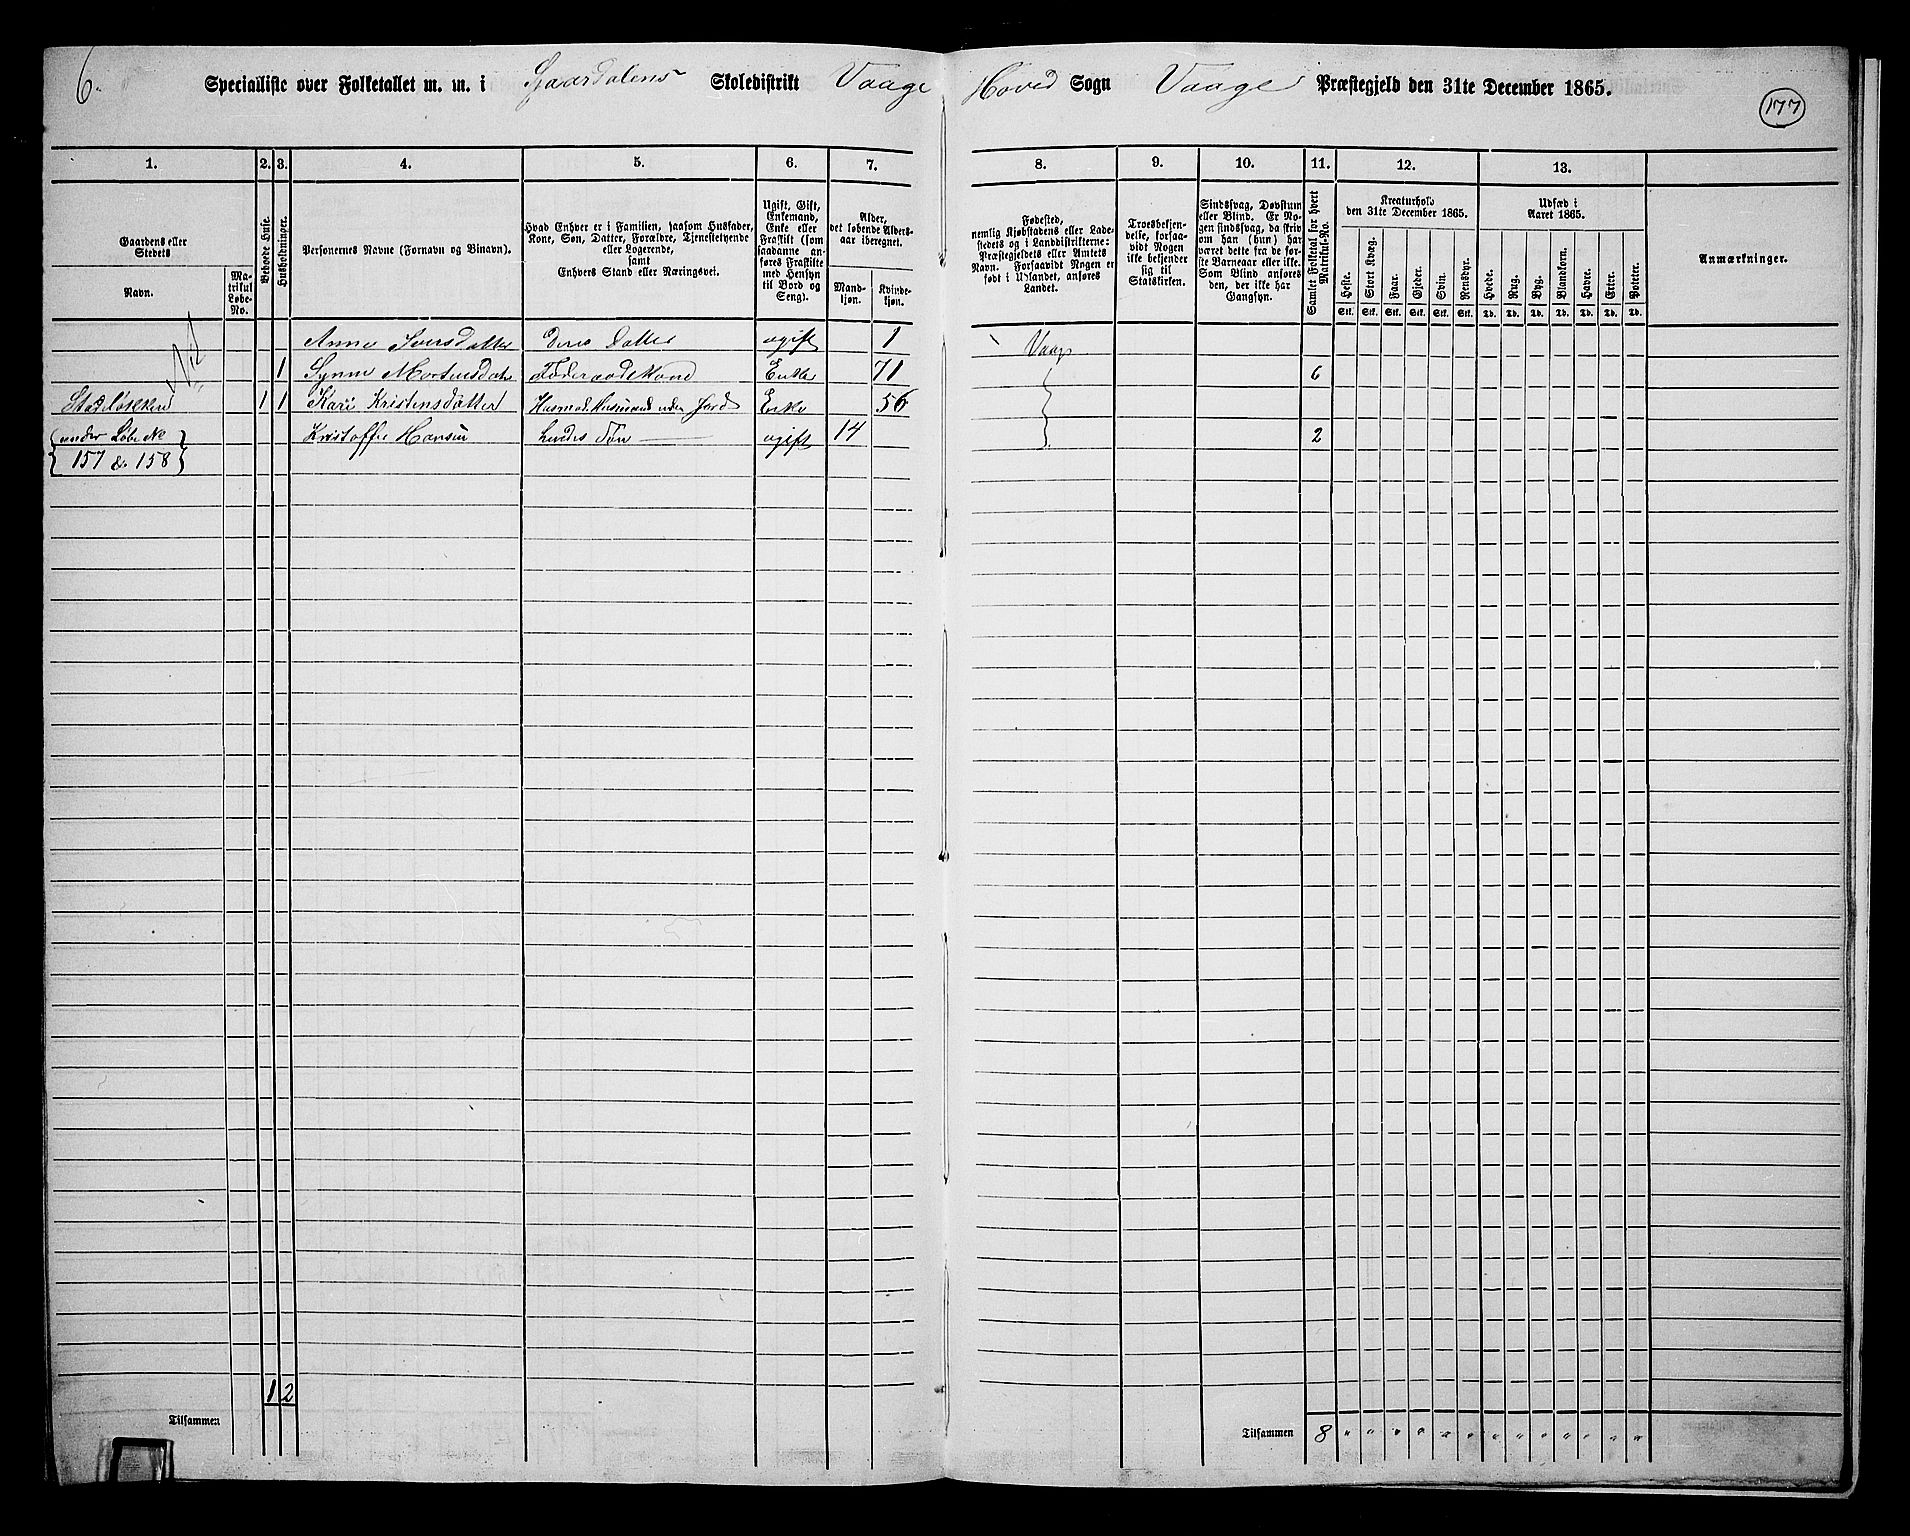 6.
Specialliste over Folketallet m. m. i Sjaardalens Skoledistrikt Vaage Hoved Sogn Vaage Præstegjeld den 31te December 1865.
177
1. 2. 3. 4. 5. 6. 7. 8. 9. 10. 11. 12. 13.
Gaardens eller Stedets
Navn.
Matrikul Løbe-No.
Beboede Huse.
Husholdninger.
Personernes Navne (Fornavn og Binavn).
Hvad Enhver er i Familien, saasom Husfader, Kone, Søn, Datter, Forældre, Tjenestetyende eller Logerende,
samt
Enhvers Stand eller Næringsvei.
Ugift, Gift, Enkemand, Enke eller Fraskilt (som saadanne anføres Fraskilte med Hensyn til Bord og Seng).
Alder, det løbende Aldersaar iberegnet.
Mandkjøn. Kvindekjøn.
Fødested, nemlig Kjøbstadens eller Ladestedets og i Landdistrikterne: Præstegjeldets eller Amtets Navn. Forsaavidt Nogen er født i Udlandet, anføres Landet.
Troesbekjendelse, forsaavidt Nogen ikke bekjender sig til Statskirken.
Sindssvag, Døvstum eller Blind. Er Nogen sindssvag, da skriv om han (hun) har været dette fra de første Barneaar eller ikke. Som Blind anføres den, der ikke har Gangsyn.
Samlet Folketal for hvert Matrikul-No.
Kreaturhold den 31te December 1865.
Heste. Stort Kvæg. Faar. Gjeder. Svin. Rensdyr.
Stk. Stk. Stk. Stk. Stk. Stk.
Udsæd i Aaret 1865.
Hvede. Rug. Byg. Blandkorn. Havre. Erter. Poteter.
Td. Td. Td. Td. Td. Td. Td.
Anmærkninger.
Anne Iversdatter Deres Datter ugift 1 Vaage
1 Synne Mortensdatr Føderaadskone Enke 71 6
1 1 Kari Kristensdatter Enke 56
under Løbe No Kristoffer Hansen hendes Søn ugift 14 2
157 & 158
1 2
Tilsammen
Tilsammen 8 " " " " " " " " " " " " "